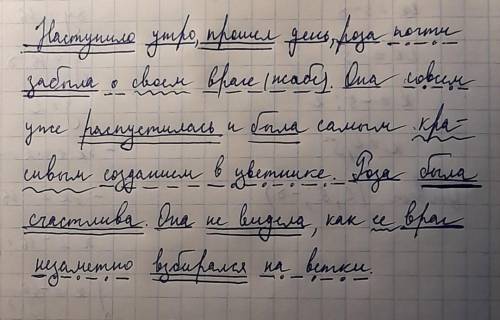 Наступило утро, прошел день, роза почти
забыла о своем враге (жабе). Она совсем
уже распустилась и была самым кра-
сивым созданием в цветнике. Роза была
счастлива. Она не видела, как ее враг
незаметно взбирался на ветки.